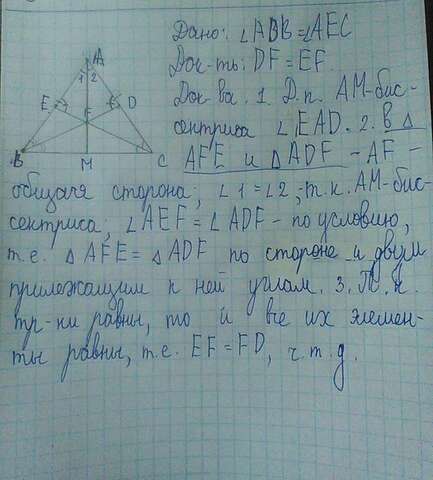 Дано: ∠ADB = ∠AEC
Док-ть: DF = EF
Док-ва. 1. Д.п. AM-бис-
сектриса ∠EAD. 2. В △
AFE и △ADF - AF -
общая сторона; ∠1 = ∠2, т.к. AM-бис-
сектриса; ∠AEF = ∠ADF - по условию,
т.е. △AFE = △ADF по стороне и двум
прилежащим к ней углам. 3. Т.к.
тр-ки равны, то и все их элемен-
ты равны, т.е. EF = FD, ч.т.д.
A
1 2
E D
F
B M C